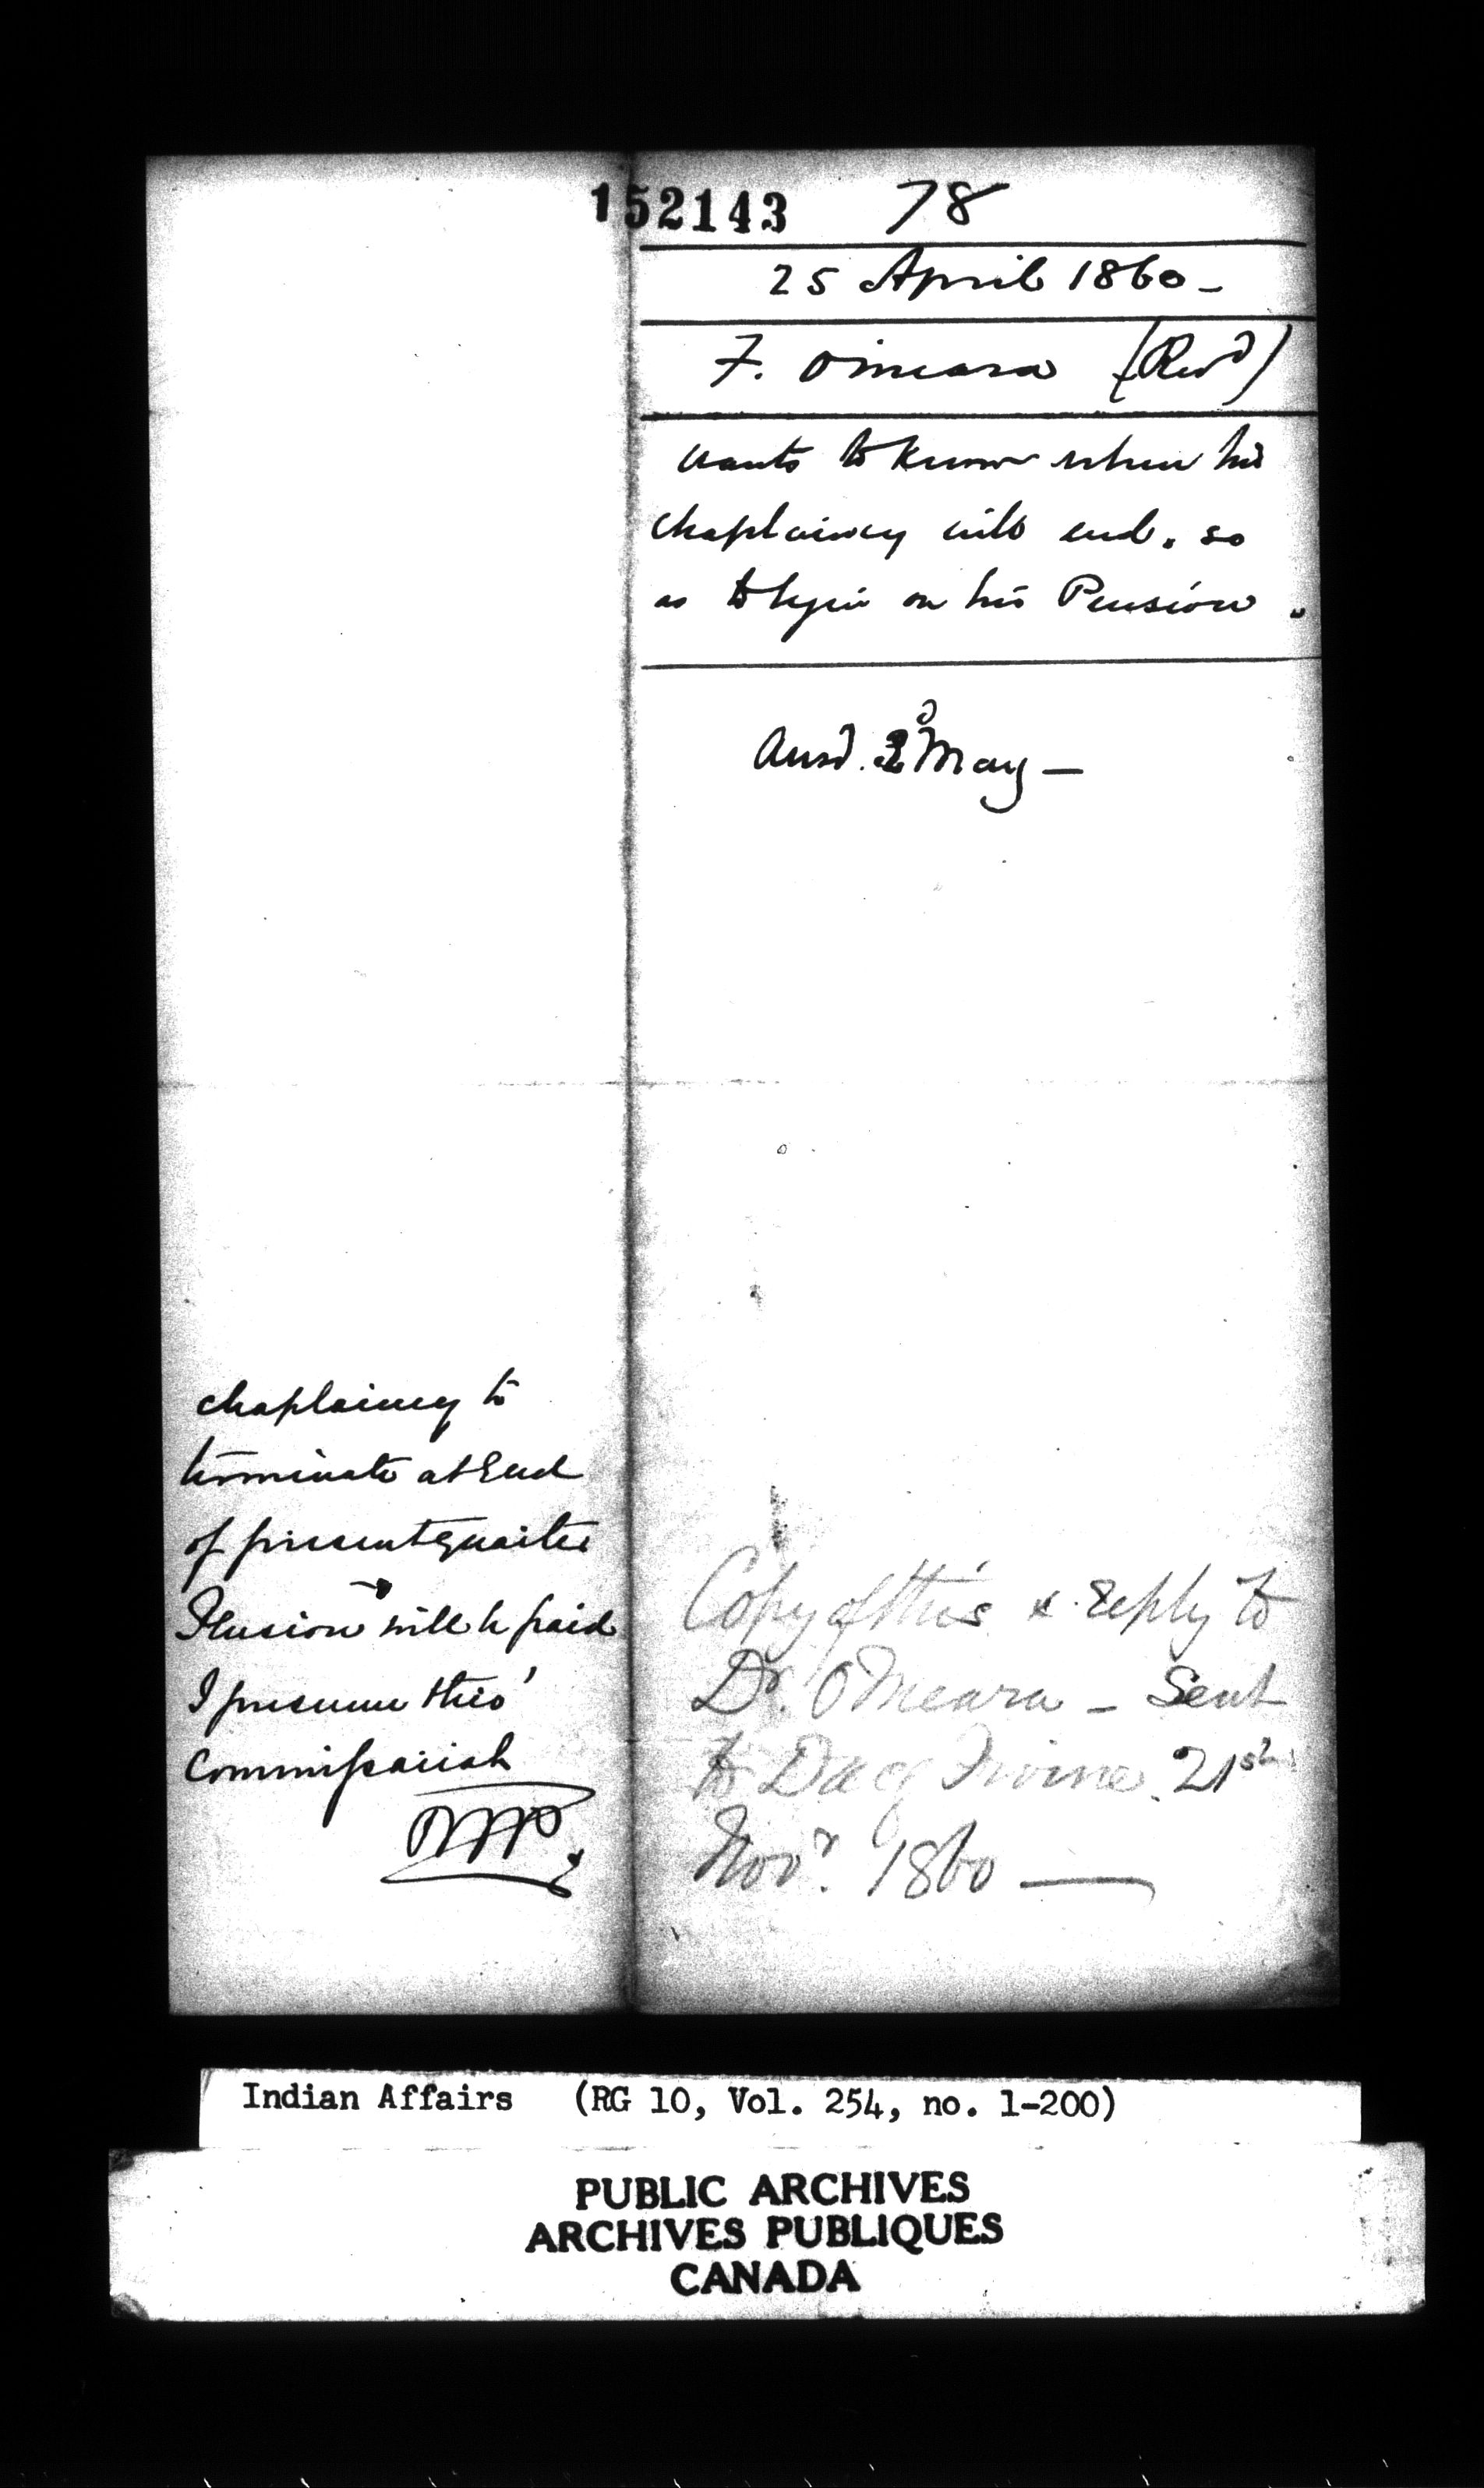 152143 78
25 April 1860 –
F. O'meara (Revd)
wants to know when his
chaplaincy will end. so
as to begin on his Pension.
Ansd. 2d May –
chaplaincy to
terminate at End
of present quarter
Pension will be paid
I presume thro'
Commissariat
Copy of this & reply to
Dr. O'Meara – Sent
to Irvine. 21st
Novr. 1860 —
Indian Affairs (RG 10, Vol. 254, no. 1-200)
PUBLIC ARCHIVES
ARCHIVES PUBLIQUES
CANADA